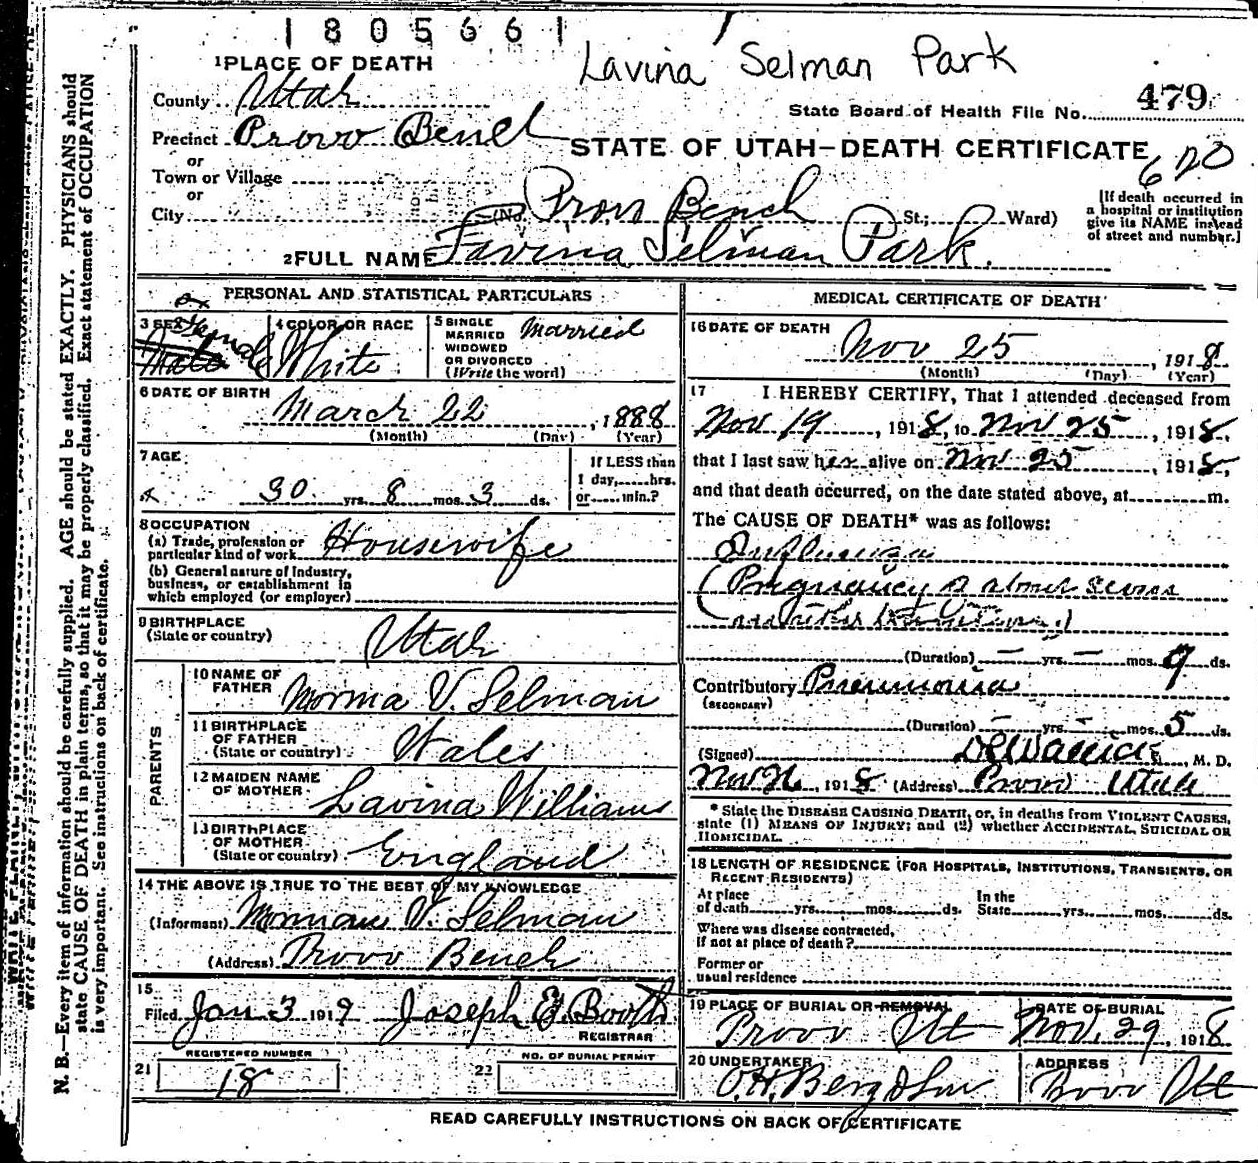 1805661
Lavina Selman Park
1 PLACE OF DEATH
County Utah
State Board of Health File No. 479
Precinct Provo Bench
STATE OF UTAH—DEATH CERTIFICATE
620
or
Town or Village
or
City (No. Provo Bench St.; Ward)
[If death occurred in
a hospital or institution
give its NAME instead
of street and number.]
2 FULL NAME Lavina Selman Park.
PERSONAL AND STATISTICAL PARTICULARS
3 SEX Male Female
4 COLOR OR RACE White
5 SINGLE
MARRIED
WIDOWED
OR DIVORCED
(Write the word)
Married
6 DATE OF BIRTH
March 22, 1888
(Month) (Day) (Year)
7 AGE
30 yrs. 8 mos. 3 ds.
If LESS than
1 day,......hrs.
or......min.?
8 OCCUPATION
(a) Trade, profession or
particular kind of work Housewife
(b) General nature of Industry,
business, or establishment in
which employed (or employer)
9 BIRTHPLACE
(State or country) Utah
PARENTS
10 NAME OF
FATHER Morma V. Selman
11 BIRTHPLACE
OF FATHER
(State or country) Wales
12 MAIDEN NAME
OF MOTHER Lavina Williams
13 BIRTHPLACE
OF MOTHER
(State or country) England
14 THE ABOVE IS TRUE TO THE BEST OF MY KNOWLEDGE
(Informant) Morman V. Selman
(Address) Provo Bench
15
Filed Jan 3 1919 Joseph E. Booth
REGISTRAR
REGISTERED NUMBER
21 18
NO. OF BURIAL PERMIT
22
MEDICAL CERTIFICATE OF DEATH
16 DATE OF DEATH
Nov 25, 1918
(Month) (Day) (Year)
17 I HEREBY CERTIFY, That I attended deceased from
Nov 19, 1918, to Nov 25, 1918,
that I last saw her alive on Nov 25, 1918,
and that death occurred, on the date stated above, at m.
The CAUSE OF DEATH* was as follows:
Influenza
(Pregnancy of about seven
(Duration) — yrs. — mos. 9 ds.
Contributory Pneumonia
(SECONDARY)
(Duration) — yrs. — mos. 5 ds.
(Signed) M. D.
Nov 26, 1918 (Address) Provo Utah
* State the DISEASE CAUSING DEATH, or, in deaths from VIOLENT CAUSES,
state (1) MEANS OF INJURY; and (2) whether ACCIDENTAL, SUICIDAL OR
HOMICIDAL.
18 LENGTH OF RESIDENCE (FOR HOSPITALS, INSTITUTIONS, TRANSIENTS, OR
RECENT RESIDENTS)
At place
of death yrs. mos. ds.
In the
State yrs. mos. ds.
Where was disease contracted,
if not at place of death?
Former or
usual residence
19 PLACE OF BURIAL OR REMOVAL
Provo Ut
DATE OF BURIAL
Nov. 29, 1918
20 UNDERTAKER
O.H. Berg & Son
ADDRESS
Provo Ut
READ CAREFULLY INSTRUCTIONS ON BACK OF CERTIFICATE
N. B.—Every item of information should be carefully supplied. AGE should be stated EXACTLY. PHYSICIANS should
state CAUSE OF DEATH in plain terms, so that it may be properly classified. Exact statement of OCCUPATION
is very important. See instructions on back of certificate.